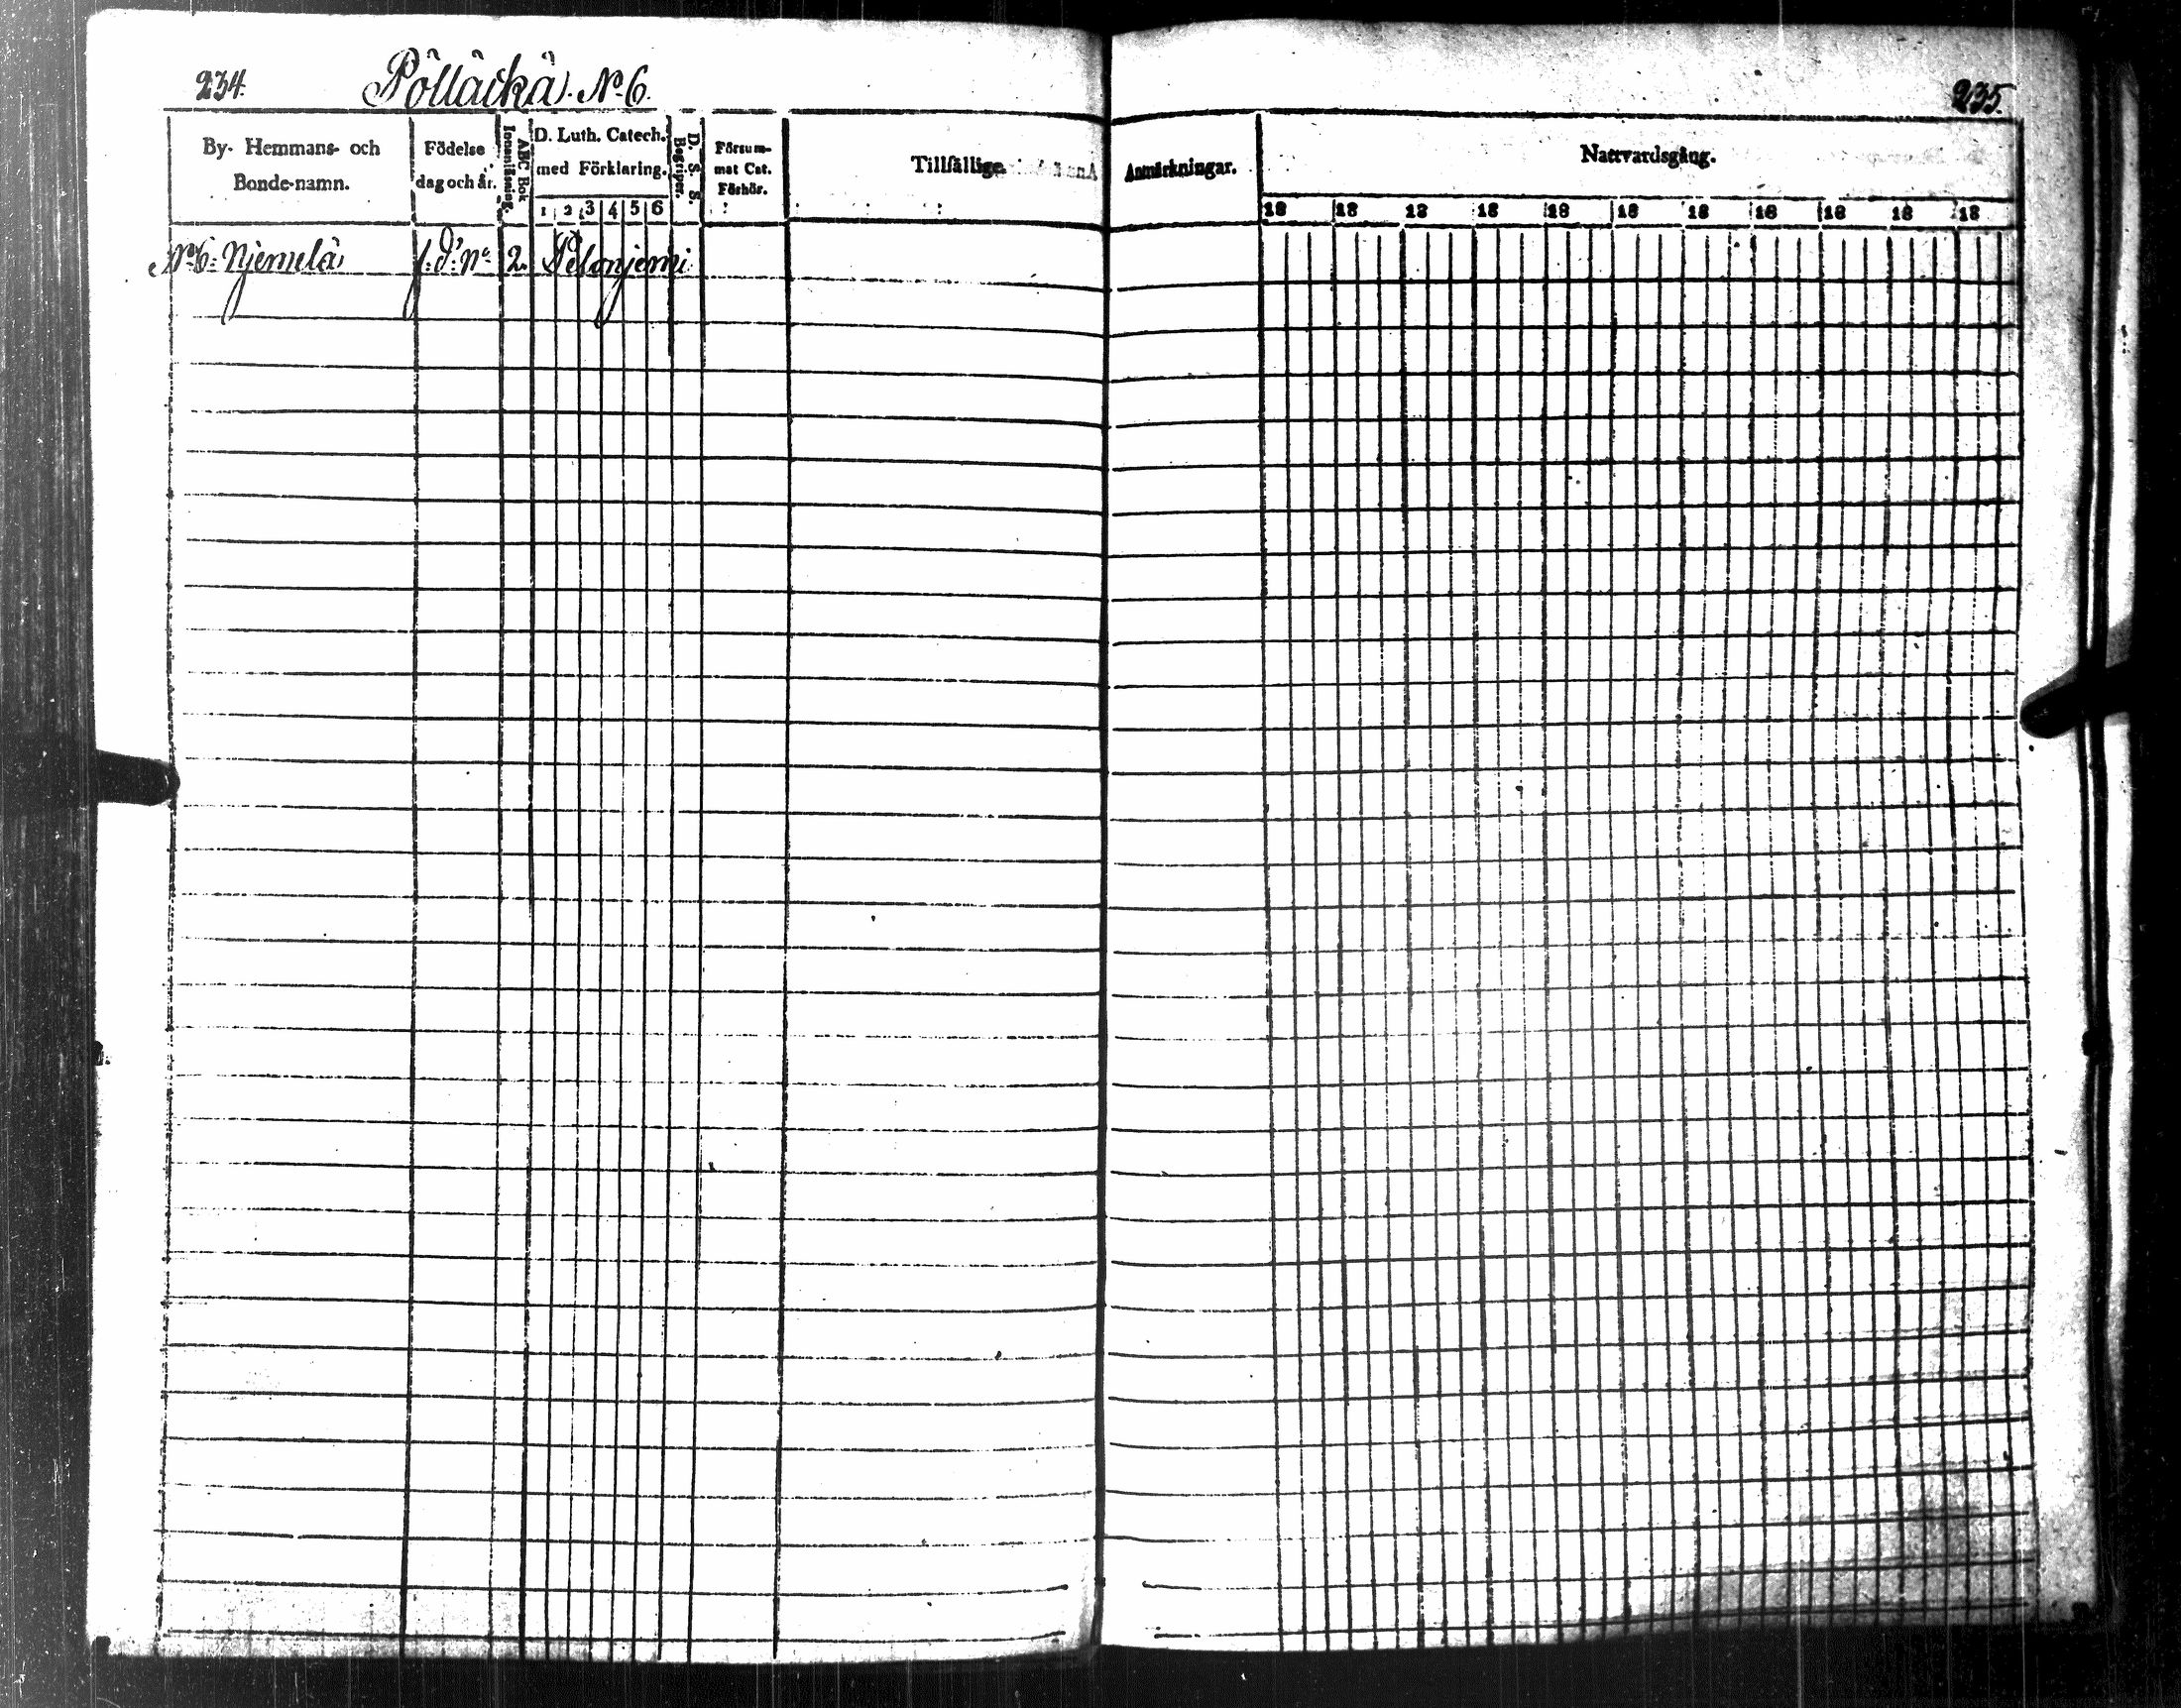 234.
Pölläckä. No 6.
By- Hemmans- och
Bonde-namn.
Födelse
dag och år.
ABC Bok
Innanläsning.
D. Luth. Catech.
med Förklaring.
1 2 3 4 5 6
D. S. S.
Begriper.
Försum-
mat Cat.
Förhör.
Tillfällige
No 6: Njemelä f: d: No 2. Pelonjemi
235.
Anmärkningar.
Nattvardsgång.
18 18 18 18 18 18 18 18 18 18 18